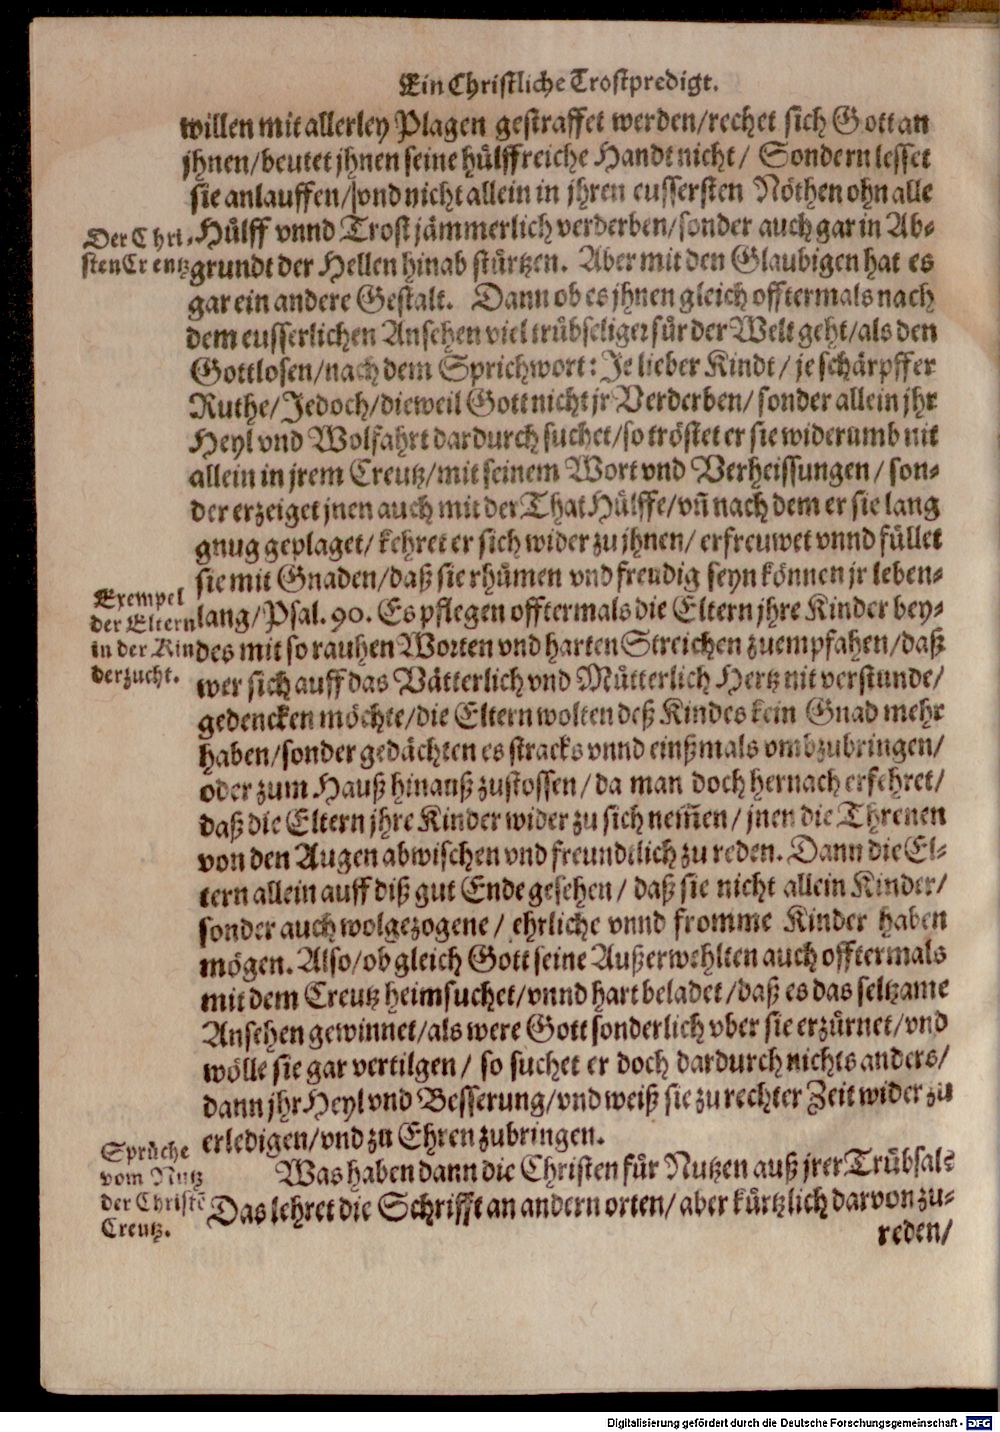 Ein Christliche Trostpredigt.
willen mit allerley Plagen gestraffet werden/rechet sich Gott an
jhnen/beutet jhnen seine hülffreiche Handt nicht/ Sondern lesset
sie anlauffen/vnd nicht allein in jhren eussersten Nöthen ohn alle
Hülff vnnd Trost jämmerlich verderben/sonder auch gar in Ab-
grundt der Hellen hinab stürtzen. Aber mit den Glaubigen hat es
gar ein andere Gestalt. Dann ob es jhnen gleich offtermals nach
dem eusserlichen Ansehen viel trübseliger für der Welt geht/als den
Gottlosen/nach dem Sprichwort: Je lieber Kindt/ je schärpffer
Ruthe/Jedoch/dieweil Gott nicht jr Verderben/ sonder allein jhr
Heyl vnd Wolfahrt dardurch suchet/so tröstet er sie widerumb nit
allein in jrem Creutz/mit seinem Wort vnd Verheissungen/ son-
der erzeiget jnen auch mit der That Hülffe/vñ nach dem er sie lang
gnug geplaget/ kehret er sich wider zu jhnen/ erfreuwet vnnd füllet
sie mit Gnaden/daß sie rhümen vnd freudig seyn können jr leben-
lang/Psal. 90. Es pflegen offtermals die Eltern jhre Kinder bey-
des mit so rauhen Worten vnd harten Streichen zuempfahen/daß
wer sich auff das Vätterlich vnd Mütterlich Hertz nit verstunde/
gedencken möchte/die Eltern wolten deß Kindes kein Gnad mehr
haben/sonder gedächten es stracks vnnd einßmals vmbzubringen/
oder zum Hauß hinauß zustossen/ da man doch hernach erfehret/
daß die Eltern jhre Kinder wider zu sich nem̃en/ jnen die Threnen
von den Augen abwischen vnd freundtlich zu reden. Dann die El-
tern allein auff diß gut Ende gesehen/ daß sie nicht allein Kinder/
sonder auch wolgezogene/ ehrliche vnnd fromme Kinder haben
mögen. Also/ob gleich Gott seine Außerwehlten auch offtermals
mit dem Creutz heimsuchet/vnnd hart beladet/daß es das seltzame
Ansehen gewinnet/als were Gott sonderlich vber sie erzürnet/vnd
wölle sie gar vertilgen/ so suchet er doch dardurch nichts anders/
dann jhr Heyl vnd Besserung/vnd weiß sie zu rechter Zeit wider zu
erledigen/vnd zu Ehren zubringen.
Was haben dann die Christen für Nutzen auß jrer Trübsal?
Das lehret die Schrifft an andern orten/ aber kürtzlich darvon zu-
reden/
Der Chri-
sten Creutz
Exempel
der Eltern
in der Kin
derzucht.
Sprüche
vom Nutz
der Christẽ
Creutz.
Digitalisierung gefördert durch die Deutsche Forschungsgemeinschaft - DFG